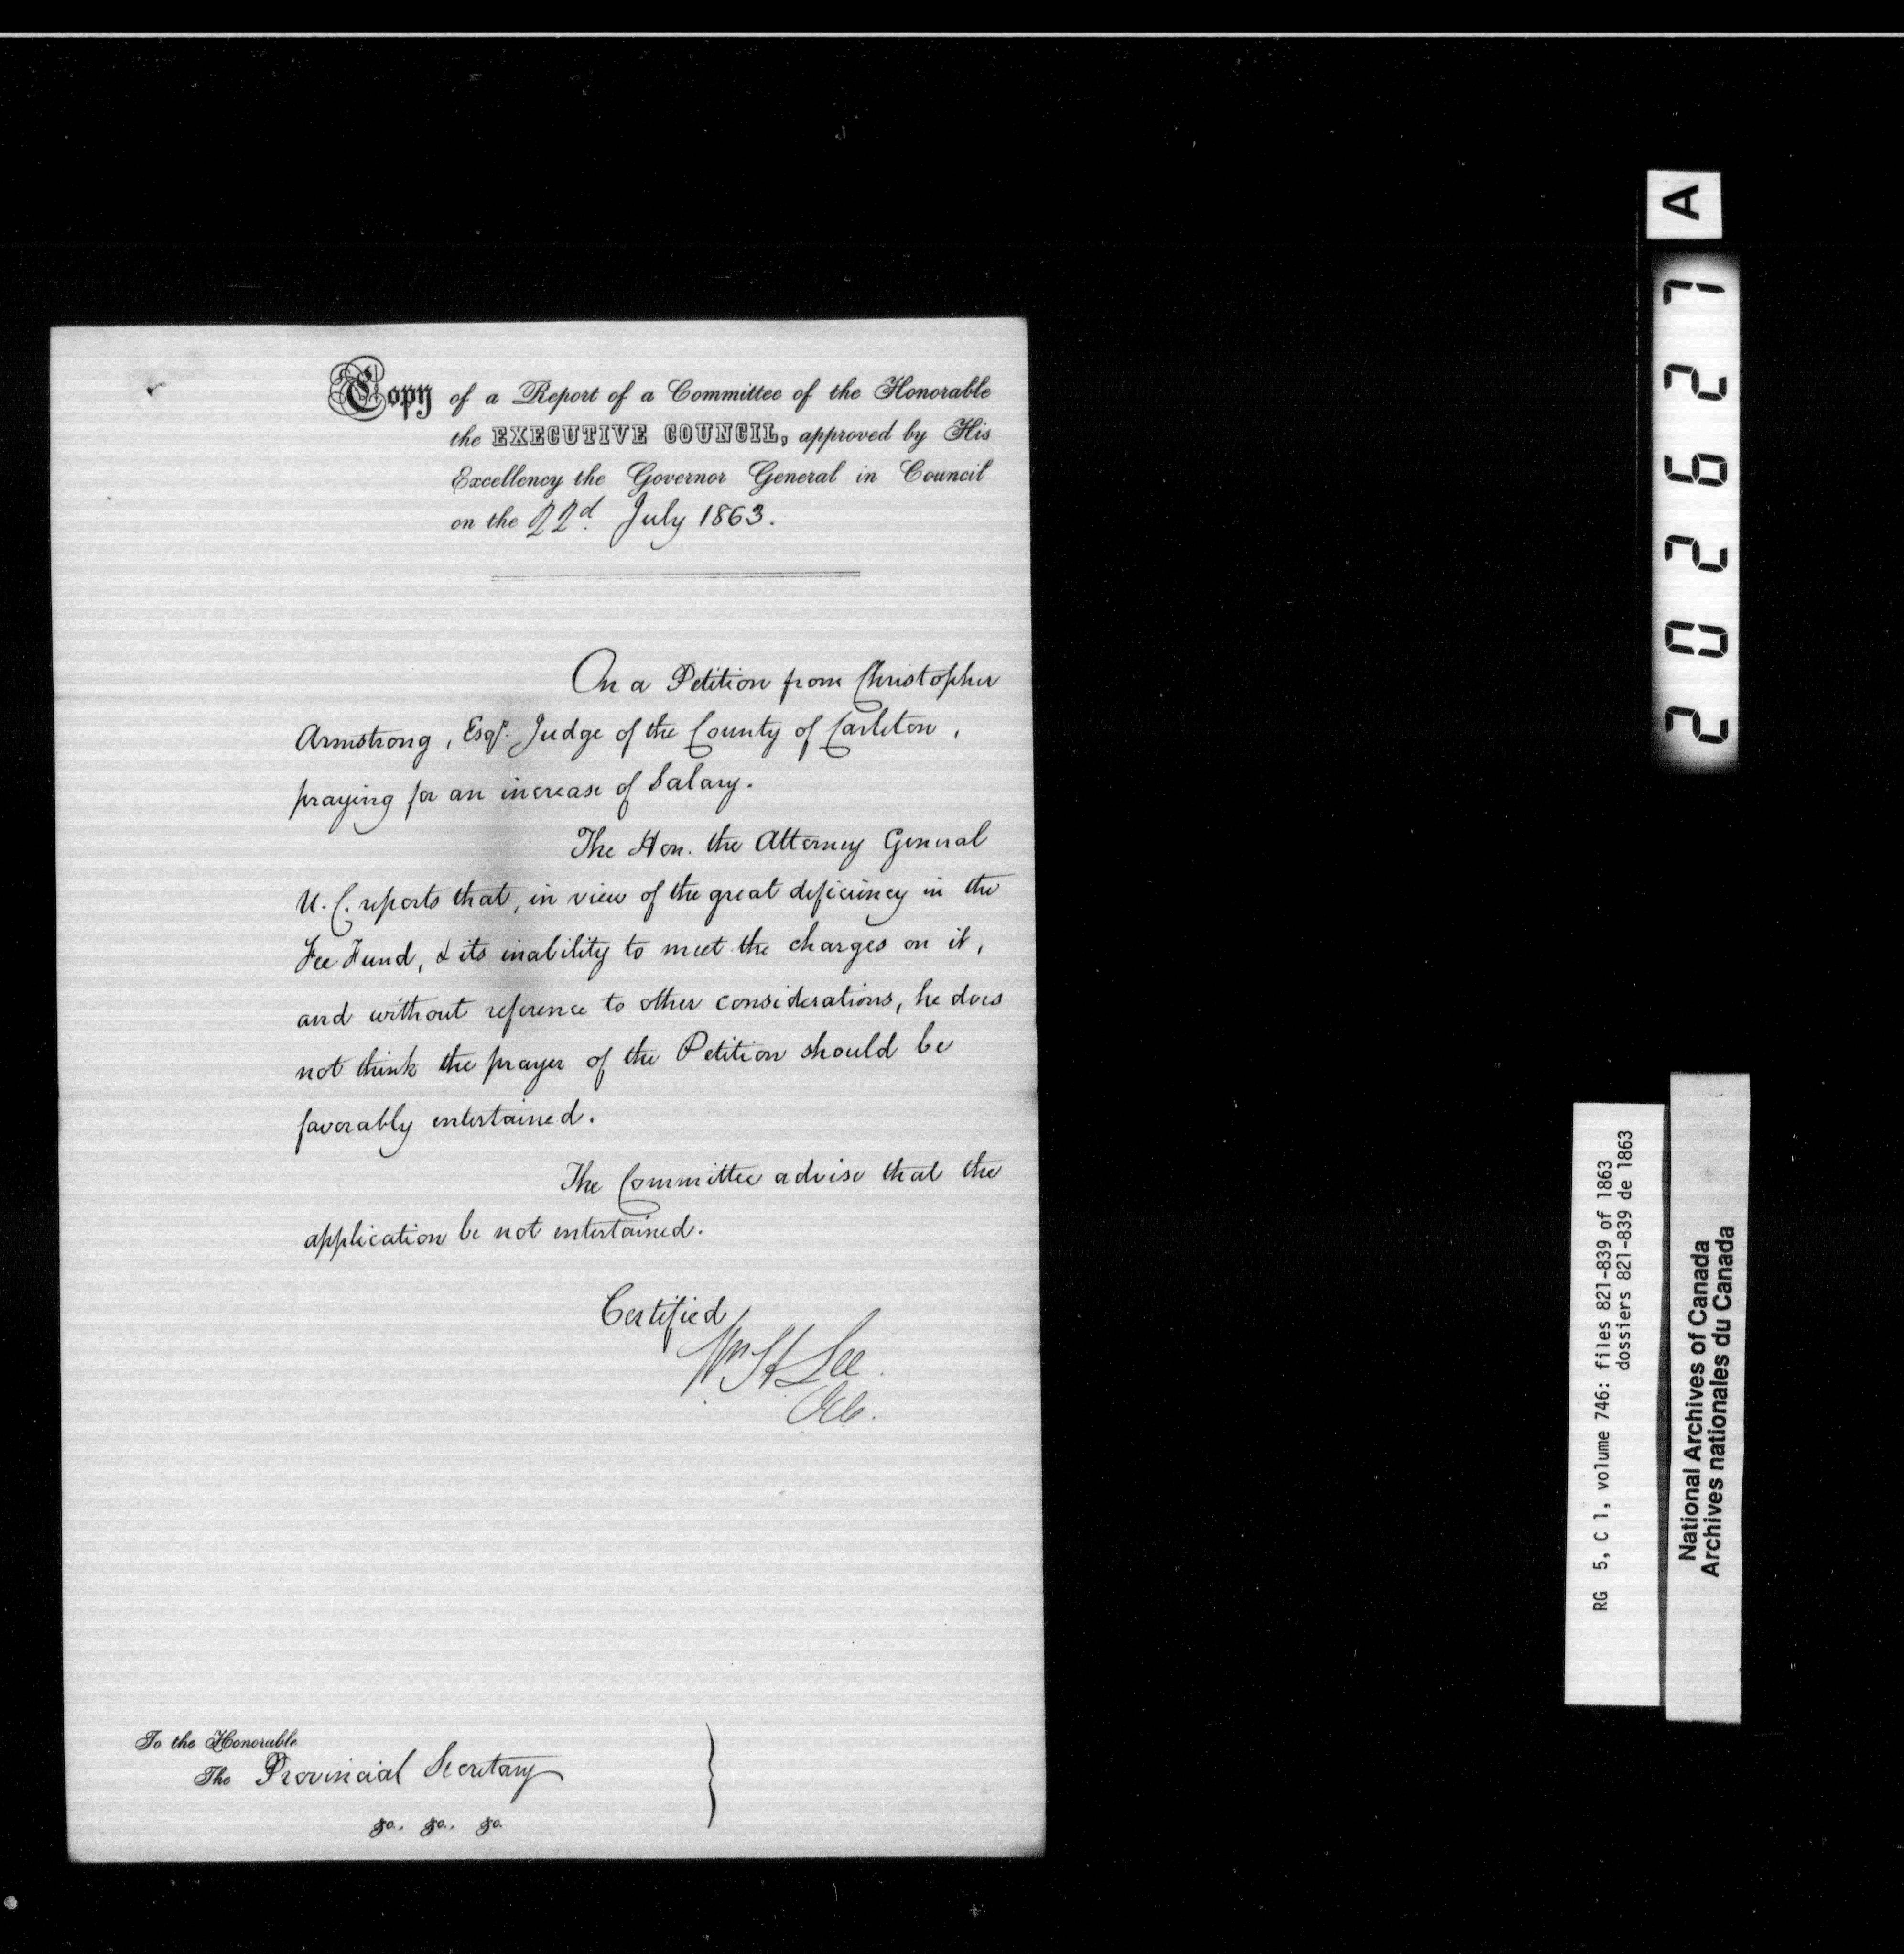 Copy of a Report of a Committee of the Honorable
the EXECUTIVE COUNCIL, approved by His
Excellency the Governor General in Council
on the 22d. July 1863.
On a Petition from Christopher
Armstrong, Esqr. Judge of the County of Carleton,
praying for an increase of Salary.
The Hon. the Attorney General
U. C. reports that, in view of the great deficiency in the
Fee Fund, & its inability to meet the charges on it,
and without reference to other considerations, he does
not think the prayer of the Petition should be
favorably entertained.
The Committee advise that the
application be not entertained.
Certified
Wm H Lee
To the Honorable
The Provincial Secretary
&c., &c., &c.
202627 A
RG 5, C 1, volume 746: files 821-839 of 1863
dossiers 821-839 de 1863
National Archives of Canada
Archives nationales du Canada